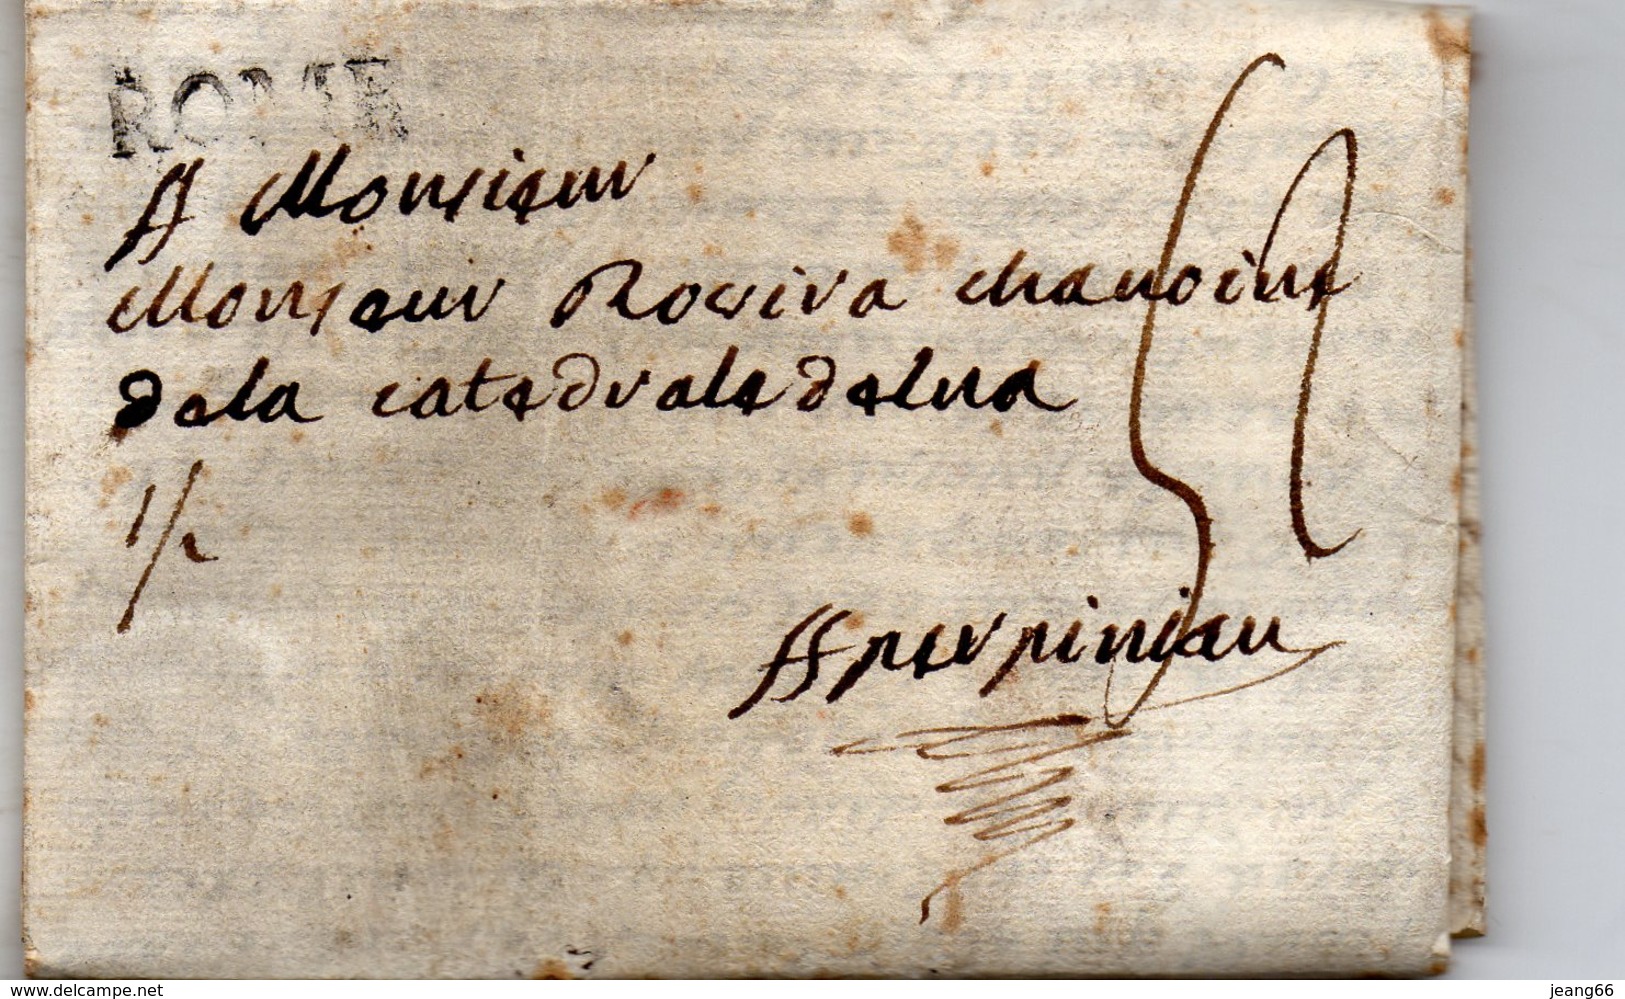 ROME
A Monsieur
Monsieur Rovira chanoine
dela catedrale delna
1/2
A perpinian
www.delcampe.net
jeang66